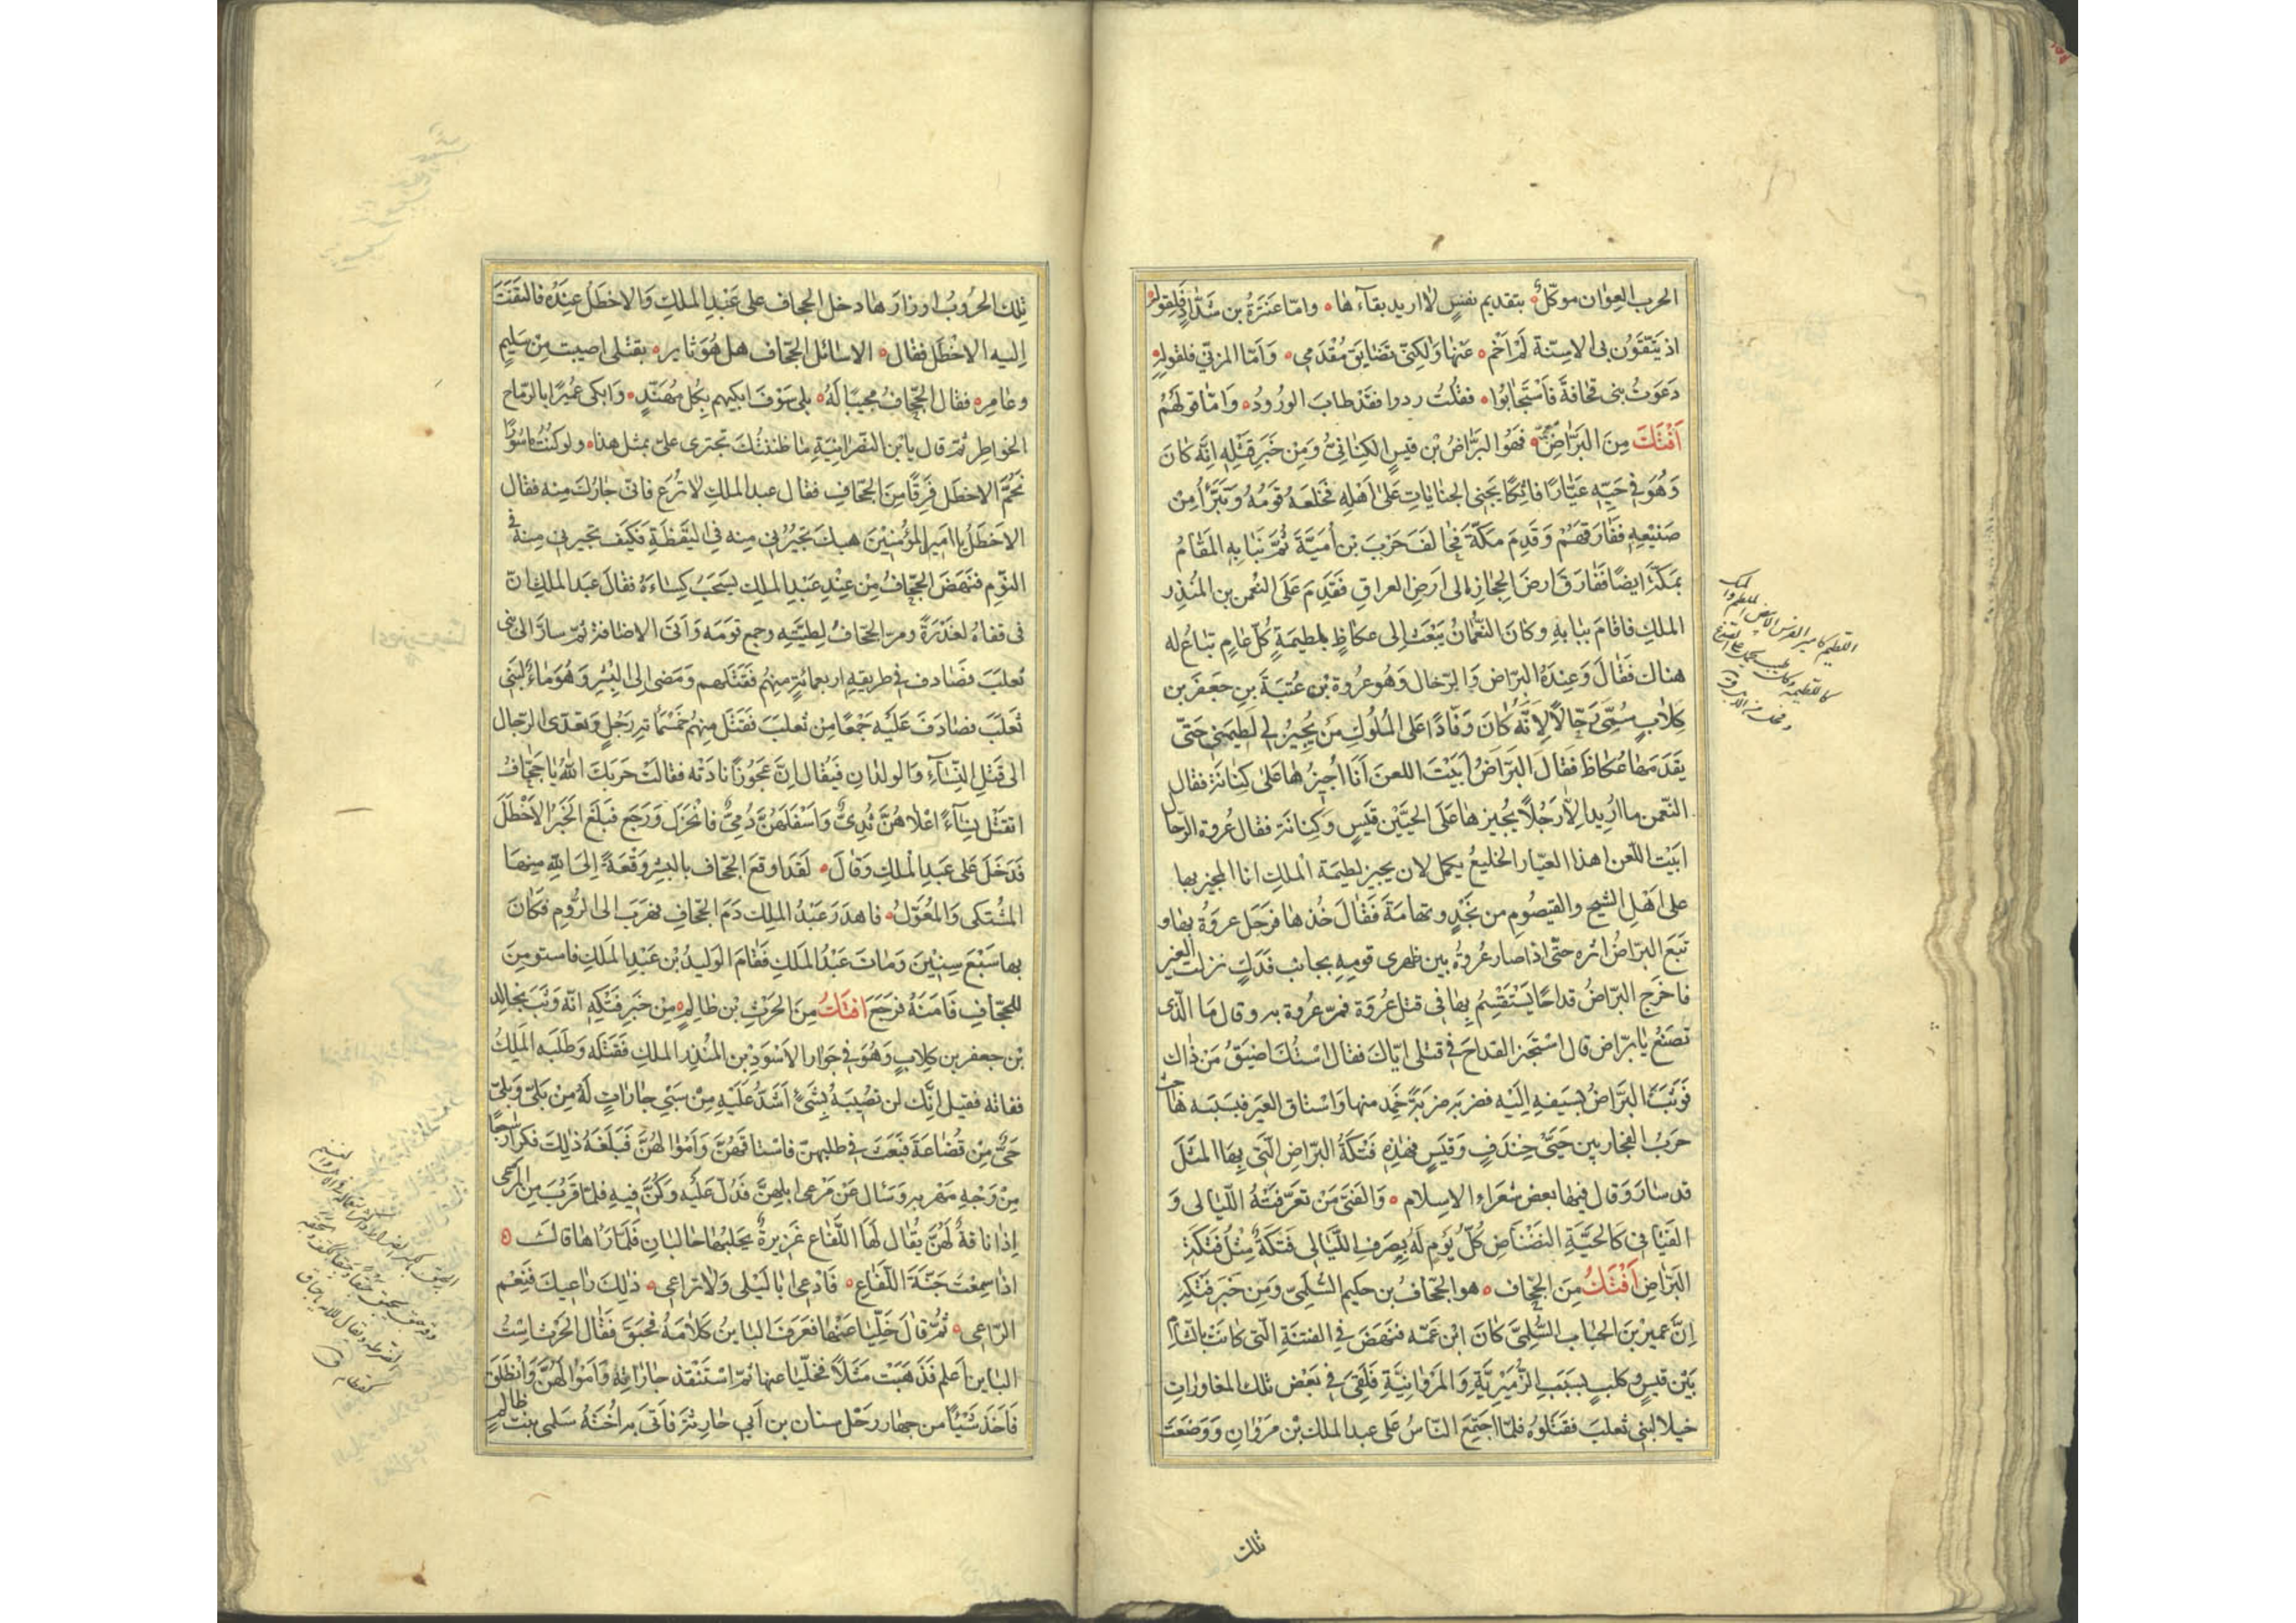 الحرب العوان موكّلٌ بتقديم نفسٍ لا اريد بقآءها وامّا عنترة بن شدّادٍ فلقوله
اذ يتّقون بى الاسنّة لم اخم عنها ولكنّى تضايق مُقدمى وَامّا المزنّى فلقوله
دَعَوتُ بنى قحافة فاستجابُوا فقلتُ ردوا فقد طابَ الورُودُ وَامّا قولهُم
اَفْتَكُ مِنَ البَرّاضِ فهو البرّاضُ بن قيسٍ الكنانىّ ومن خبر فتكه انّه كان
وَهُوَ فى حيّه عيّارًا فاتكًا يجنى الجنايات على اهله فخلعه قومُه وتبرّأُ من
صنيعه ففارقهم وقدم مكّة فحالف حرب بن اميّة ثمّ نبا به المقامُ
بمكّة ايضًا ففارق ارض الحجاز الى ارض العراق فقدم على النعمن بن المنذر
الملك فاقام ببابه وكان النعمانُ يبعث الى عكاظٍ بلطيمةٍ كلّ عامٍ تباع له
هناك فقال وعنده البرّاض والرّحال وهو عروة بن عتبة بن جعفر بن
كلابٍ سُمّى رحّالًا لانّه كان وفّادًا على الملوك من يجيز لى لطيمتى حتى
يقدمها عكاظ فقال البرّاضُ ابيت اللعن انا اُجيزها على كنانة فقال
النّعمن ما اُريد الّا رجلًا يجيزها على الحيّين قيسٍ وكنانة فقال عُروة الرّحال
ابيت اللّعن اهذا العيّار الخليعُ يكمل لان يجيز لطيمة الملك انا المجيز بها
على اهل الشيح والقيصوم من نجدٍ وتهامة فقال خُذها فرحل عروةُ بها و
تبع البرّاضُ اثره حتى اذا صار عُروةُ بين ظهرى قومه بجانب فدكٍ نزلت العير
فاخرج البرّاضُ قداحًا يستقسم بها فى قتل عُروة فمرّ عُروة به وقال ما الّذى
تصنع يا برّاض قال استخبر القداح فى قتلى ايّاك فقال استُك اضيق من ذاك
فوثب البرّاضُ بسيفه اليه فضربه ضربةً خمد منها واستاق العير فبسببه هاجت
حربُ الفجار بين حىّ خندفٍ وقيسٍ فهذه فتكةُ البرّاض الّتى بها المثل
قد سار وقال فيها بعض شعراء الاسلام والفتى من تعرّفته اللّيالى و
الفيافى كالحيّة النضناض كلّ يوم له بصرف اللّيالى فتكةٌ مثل فتكة
البرّاض اَفْتَكُ مِنَ الجحّاف هو الجحّافُ بن حكيم السُّلمىّ ومن خبر فتكه
انّ عمير بن الحباب السُّلمىّ كان ابن عمّه فنهض فى الفتنة الّتى كانت بالشّام
بين قيسٍ وكلبٍ بسبب الزّبيريّة والمروانيّة فلقى فى بعض تلك المغاورات
خيلا لبنى تعلب فقتلوه فلمّا اجتمع النّاسُ على عبد الملك بن مروان ووضعت
تلك
اللطيم كامير الفرس الابيض
تلك الحُروبُ اوزارها دخل الجحاف على عبد الملك والاخطل عنده فالتفت
اليه الاخطل فقال الا سائل الجحّاف هل هو ثاير بقتلى اصيبت من سليمٍ
وعامر فقال الجحّافُ مجيبًا له بلى سوف ابكيهم بكلّ مهنّدٍ وابكى عُميرًا بالرّماح
الخواطر ثمّ قال يابن النصرانيّة ما ظننتُك تجترى علىّ بمثل هذا ولو كنتُ ماسُورًا
فحمّ الاخطل فرقًا من الجحّاف فقال عبد الملك لا تُرع فانّى جارُك منه فقال
الاخطلُ يا امير المؤمنين هبك تجيرُنى منه فى اليقظة فكيف تجيرنى منه فى
النّوم فنهض الجحّافُ من عند عبد الملك يسحب كساءه فقال عبد الملك انّ
فى قفاه لغدرةً ومرّ الجحّافُ لطيّته وجمع قومه واتى الاضافة ثمّ سار الى بنى
تعلب فصادف فى طريقه اربعمائةٍ منهم فقتلهم ومضى الى البشر وهو ماءٌ لبنى
تعلب فصادف عليه جمعًا من تعلب فقتل منهم خمسمائة رجلٍ وتعدّى الرّجال
الى قتل النّسآء والولدان فيُقال انّ عجوزًا نادته فقالت حربك اللّه يا جحّافُ
اتقتُل نسآءً اعلاهنّ ثُدىٌّ واسفلهنّ دُمىٌّ فانخزل ورجع فبلغ الخبر الاخطل
فدخل على عبد الملك وقال لقد اوقع الجحّاف بالبشر وقعةً الى اللّه منها
المشتكى والمُعوّلُ فاهدر عبد الملك دم الجحّاف فهرب الى الرّوم فكان
بها سبع سنين ومات عبد الملك فقام الوليد بن عبد الملك فاستومن
للجحّاف فامنه فرجع افتكُ من الحرث بن ظالمٍ من خبر فتكه انّه وثب بخالد
بن جعفر بن كلابٍ وهو فى جوار الاسود بن المنذر الملك فقتله وطلبه الملكُ
ففاته فقيل انّك لن تصيبه بشىءٍ اشدّ عليه من سبى جاراتٍ له من بلىّ وبلىّ
حىٌّ من قضاعة فبعث فى طلبهنّ فاستاقهنّ واموالهنّ فبلغه ذلك فكرّ راجعًا
من وجه مهربه وسأل عن مرعى ابلهنّ فدُلّ عليه وكنّ فيه فلمّا قرب من المرعى
اذا ناقةٌ لهنّ يُقال لها اللّفاع غزيرةٌ يحلبها حالبان فلمّا رآها قال
اذا سمعت حنّة اللّفاع فادعى ابا ليلى ولا تراعى ذلك راعيك فنعم
الرّاعى ثمّ قال خلّيا عنها فعرف الباينُ كلامه فحبق فقال الحرث است
الباين اعلم فذهبت مثلًا فخلّيا عنها ثمّ استنقذ جاراته واموالهنّ وانطلق
فاخذ شيئًا من جهاز رحل سنان بن ابى حارثة فاتى به اُخته سلمى بنت ظالم